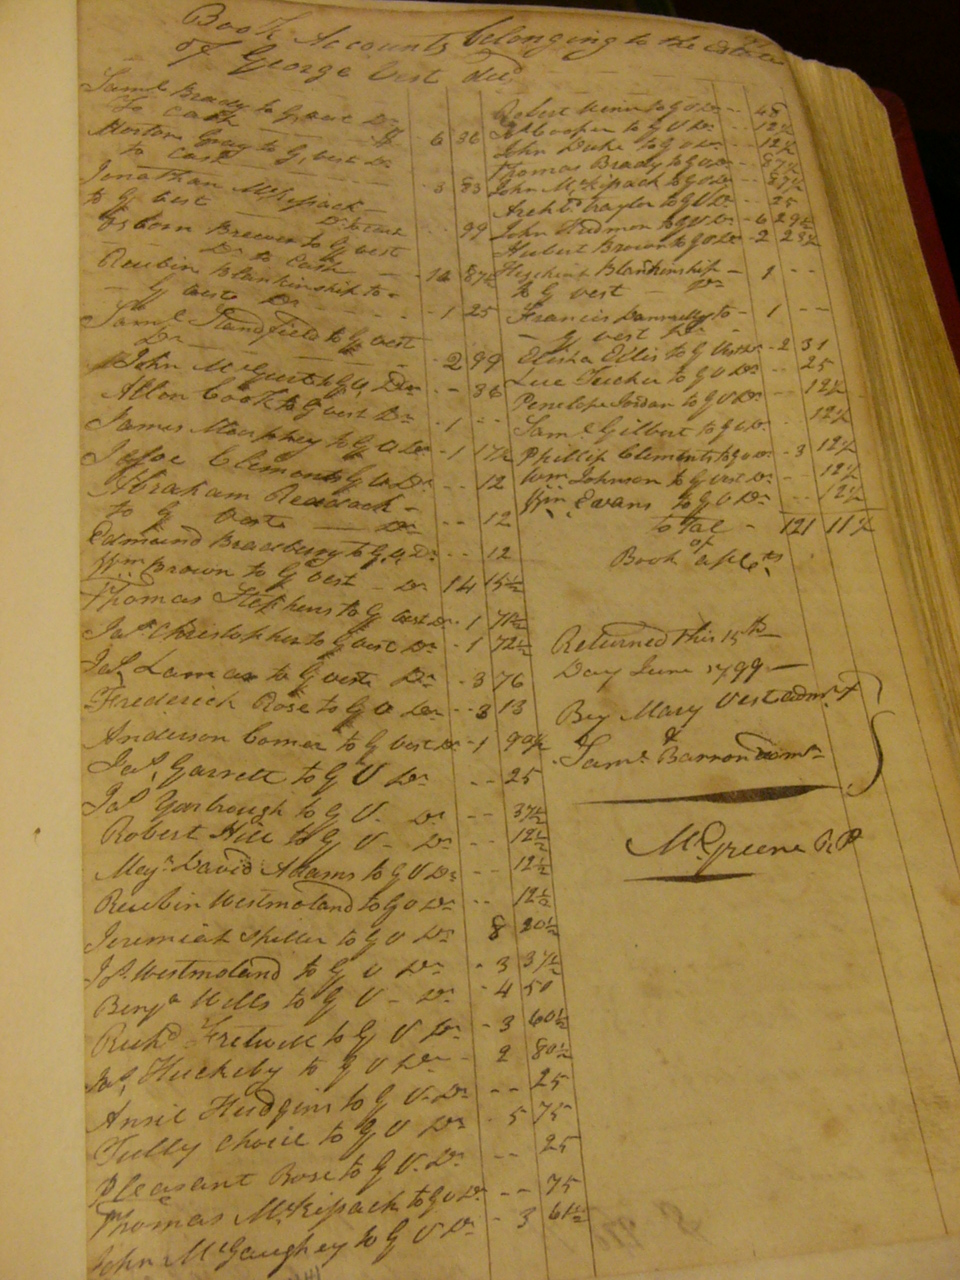 Book Accounts belonging to the Estate
of George Vest decd
Saml. Brady to G vest Dr
To cash $ 6 36
Horton Gray to G, vest Dr
to cash 3 83
Jonathan McKipack
to G vest Dr to cash 99
Osborn Brewer to G vest
Dr to cash 14 87½
Reubin Blankinship to
G vest Dr 1 25
Saml. Standfield to G vest
Dr 2 99
John McGuest to G V Dr 36
Allon Cook to G vest Dr 1
James Murphey to G V Dr 1 17½
Jesse Clements G V Dr 12
Abraham Reddock
to G vest Dr 12
Edmund Bradberry to G, V, Dr 12
Wm. Brown to G vest Dr 14 15½
Thomas Stephens to G vest Dr 1 71½
Jas. Christopher to G vest Dr 1 72½
Jas. Lamar to G vest Dr 3 76
Frederick Rose to G V Dr 3 13
Anderson Comer to G vest Dr 1 99½
Jas. Garrett to G V Dr 25
Jas. Yarbrough to G V Dr 37½
Robert Hill to G V Dr 12½
Majr. David Adams to G V Dr 12½
Reubin Westmoland to G V Dr 12½
Jeremiah Spiller to G V Dr 8 20½
Jas. Westmoland to G V Dr 3 37½
Benja Wells to G V Dr 4 50
Richd Fretwell to G V Dr 3 60½
Jas. Huckeby to G V Dr 2 80½
Ansil Hudgins to G V Dr 25
Tully Choice to G V Dr 5 75
Pleasant Rose to G V Dr 25
Thomas McKipack to G V Dr 75
John McGaughey to G V Dr 3 61½
Robert Kenn to G V Dr 48
Cooper to G V Dr 12½
John Duke to G V Dr 12½
Thomas Brady to G V Dr 87½
John McKipack to G V Dr 87½
Archd. Taylor to G V Dr 25
John Redmon to G V Dr 6 29½
Hubert Brown to G V Dr 2 23½
Hezekiah Blankenship 1
to G vest Dr
Francis Dannelly to 1
G vest Dr
Elisha Ellis to G Vest Dr 2 31
Lue Tucker to G V Dr 25
Penelope Jordan to G V Dr 12½
Saml. Gilbert to G V Dr 12½
Phillip Clements to G V Dr 3 12½
Wm. Johnson to G Vest Dr 12½
Wm. Evans to G V Dr 12½
total 121 11½
of
Book
Returned this 15th
Day June 1799
By Mary Vest admx
&
Saml. Barron admr
Mc.Greene R P